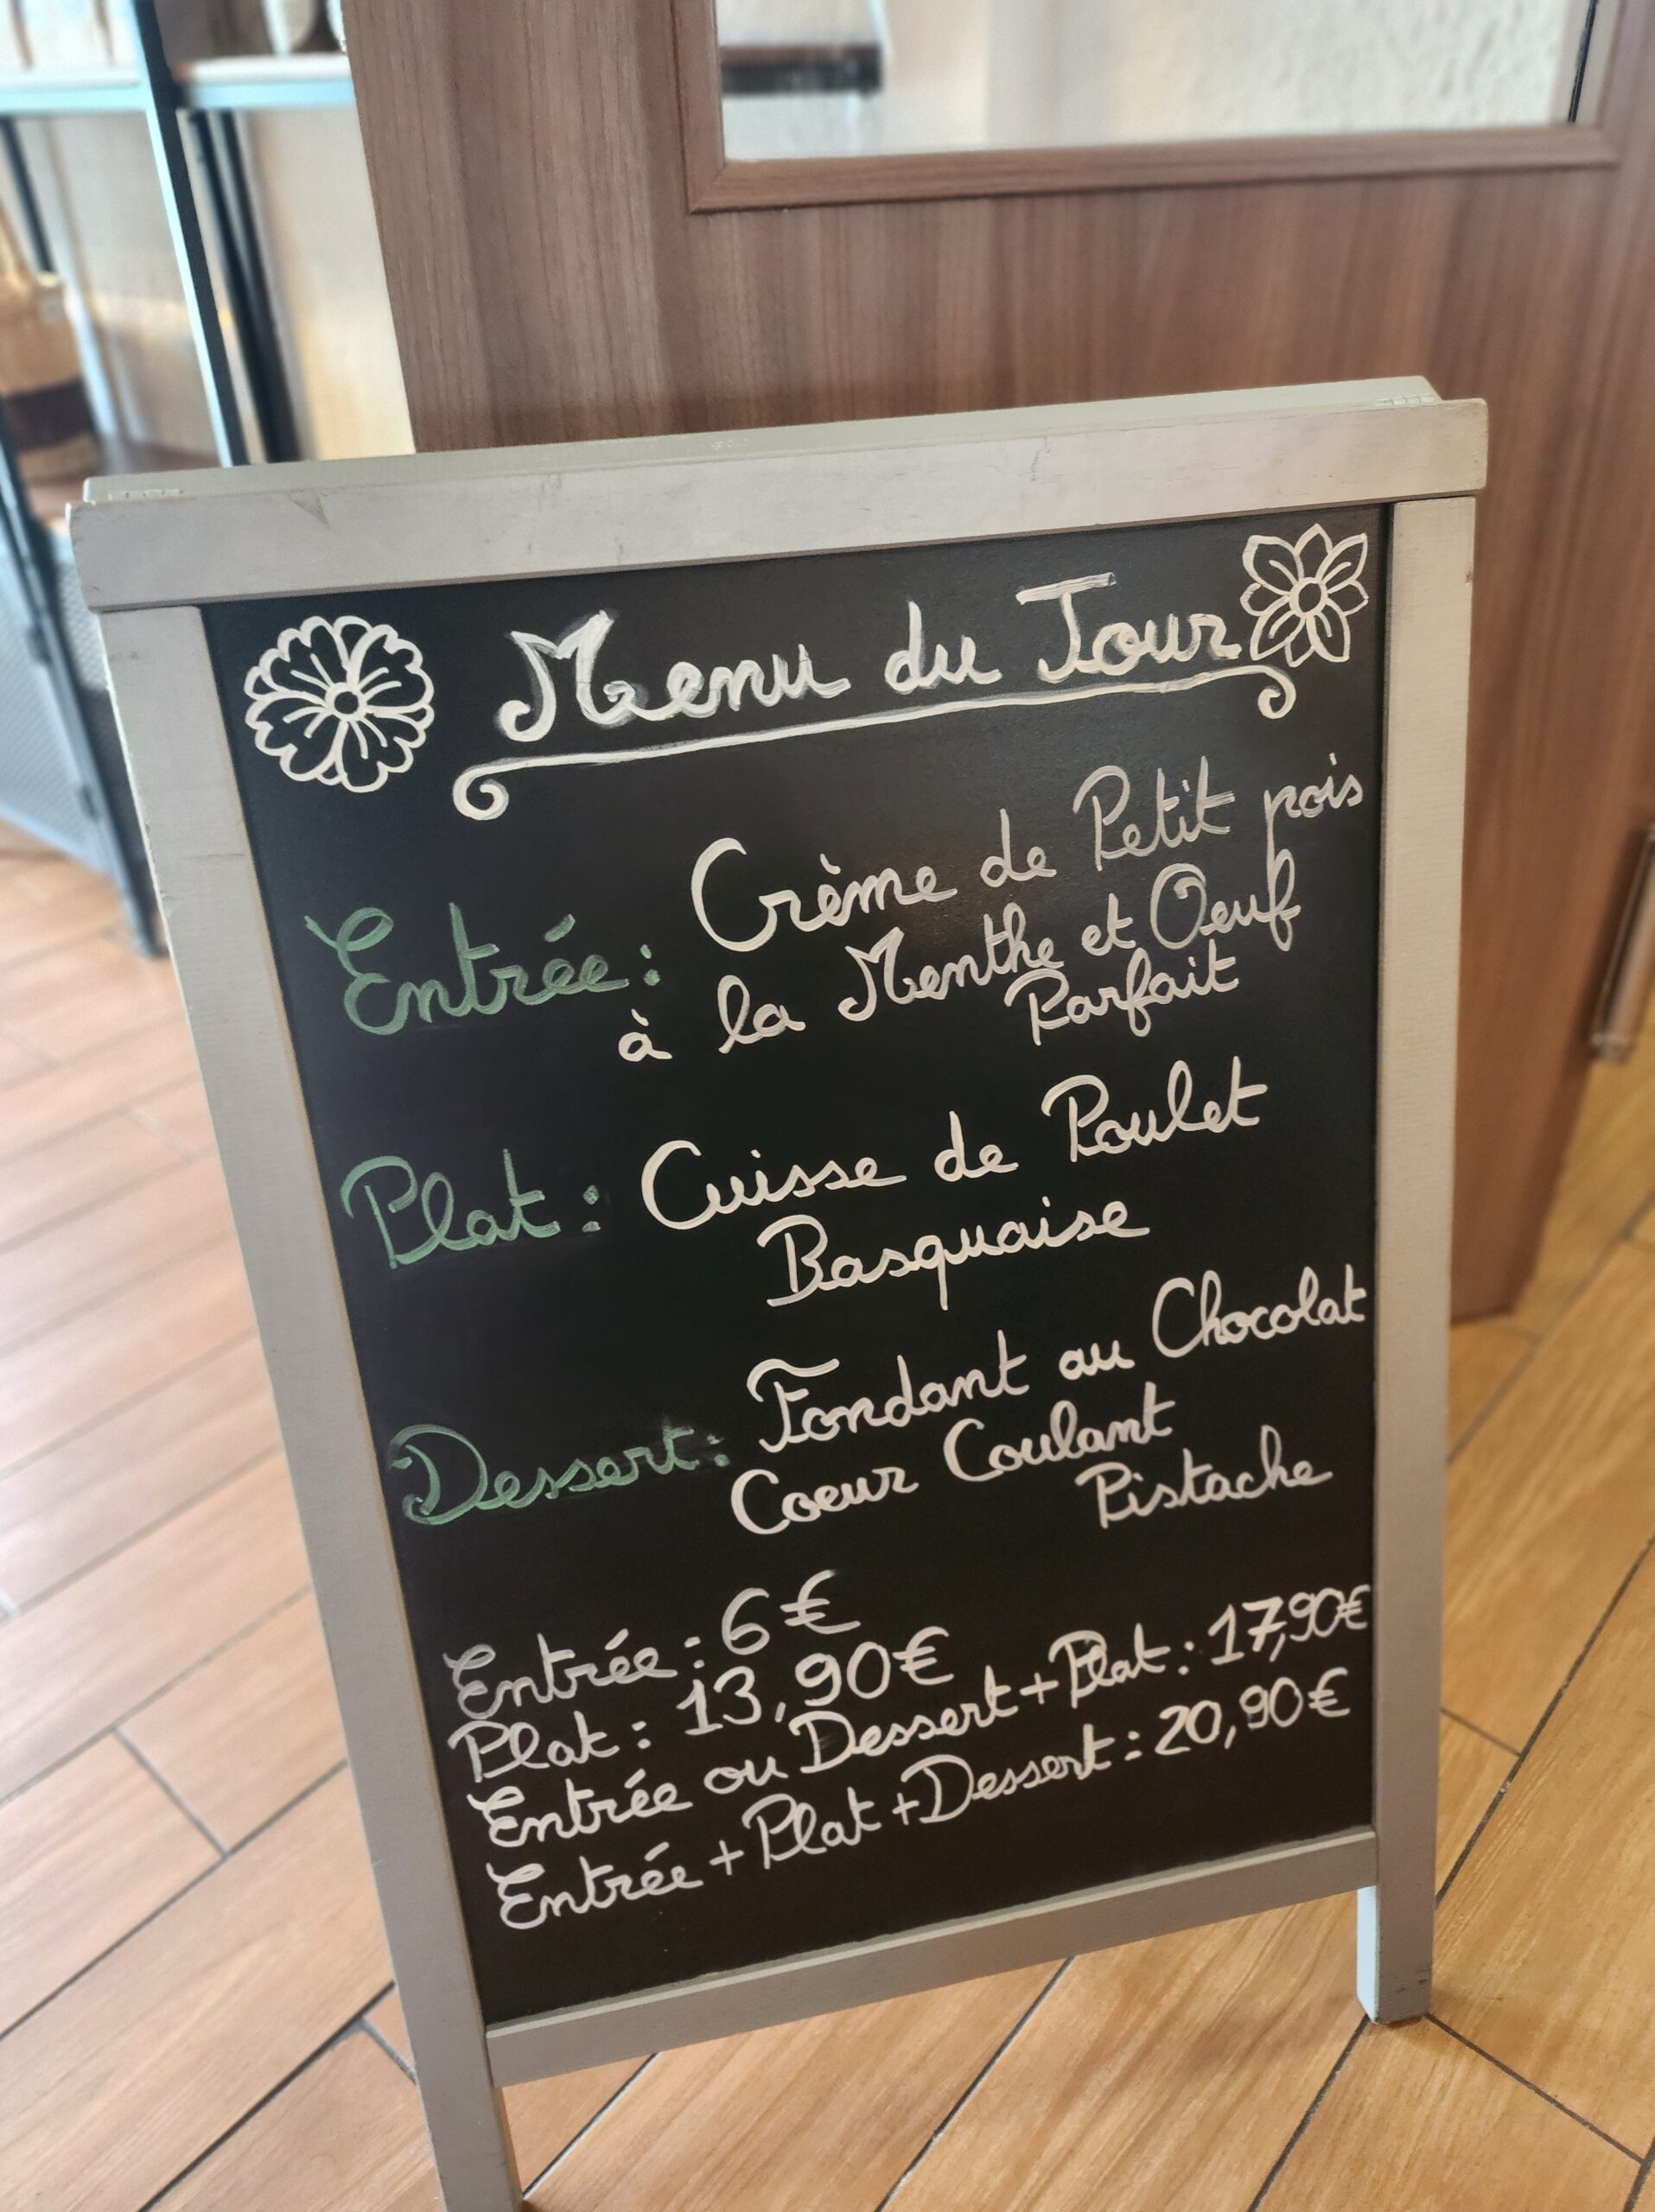 Menu du Jour
Entrée : Crème de Petit pois
à la Menthe et Oeuf
Parfait
Plat : Cuisse de Poulet
Basquaise
Dessert : Fondant au Chocolat
Coeur Coulant
Pistache
Entrée : 6€
Plat : 13,90€
Entrée ou Dessert + Plat : 17,90€
Entrée + Plat + Dessert : 20,90€